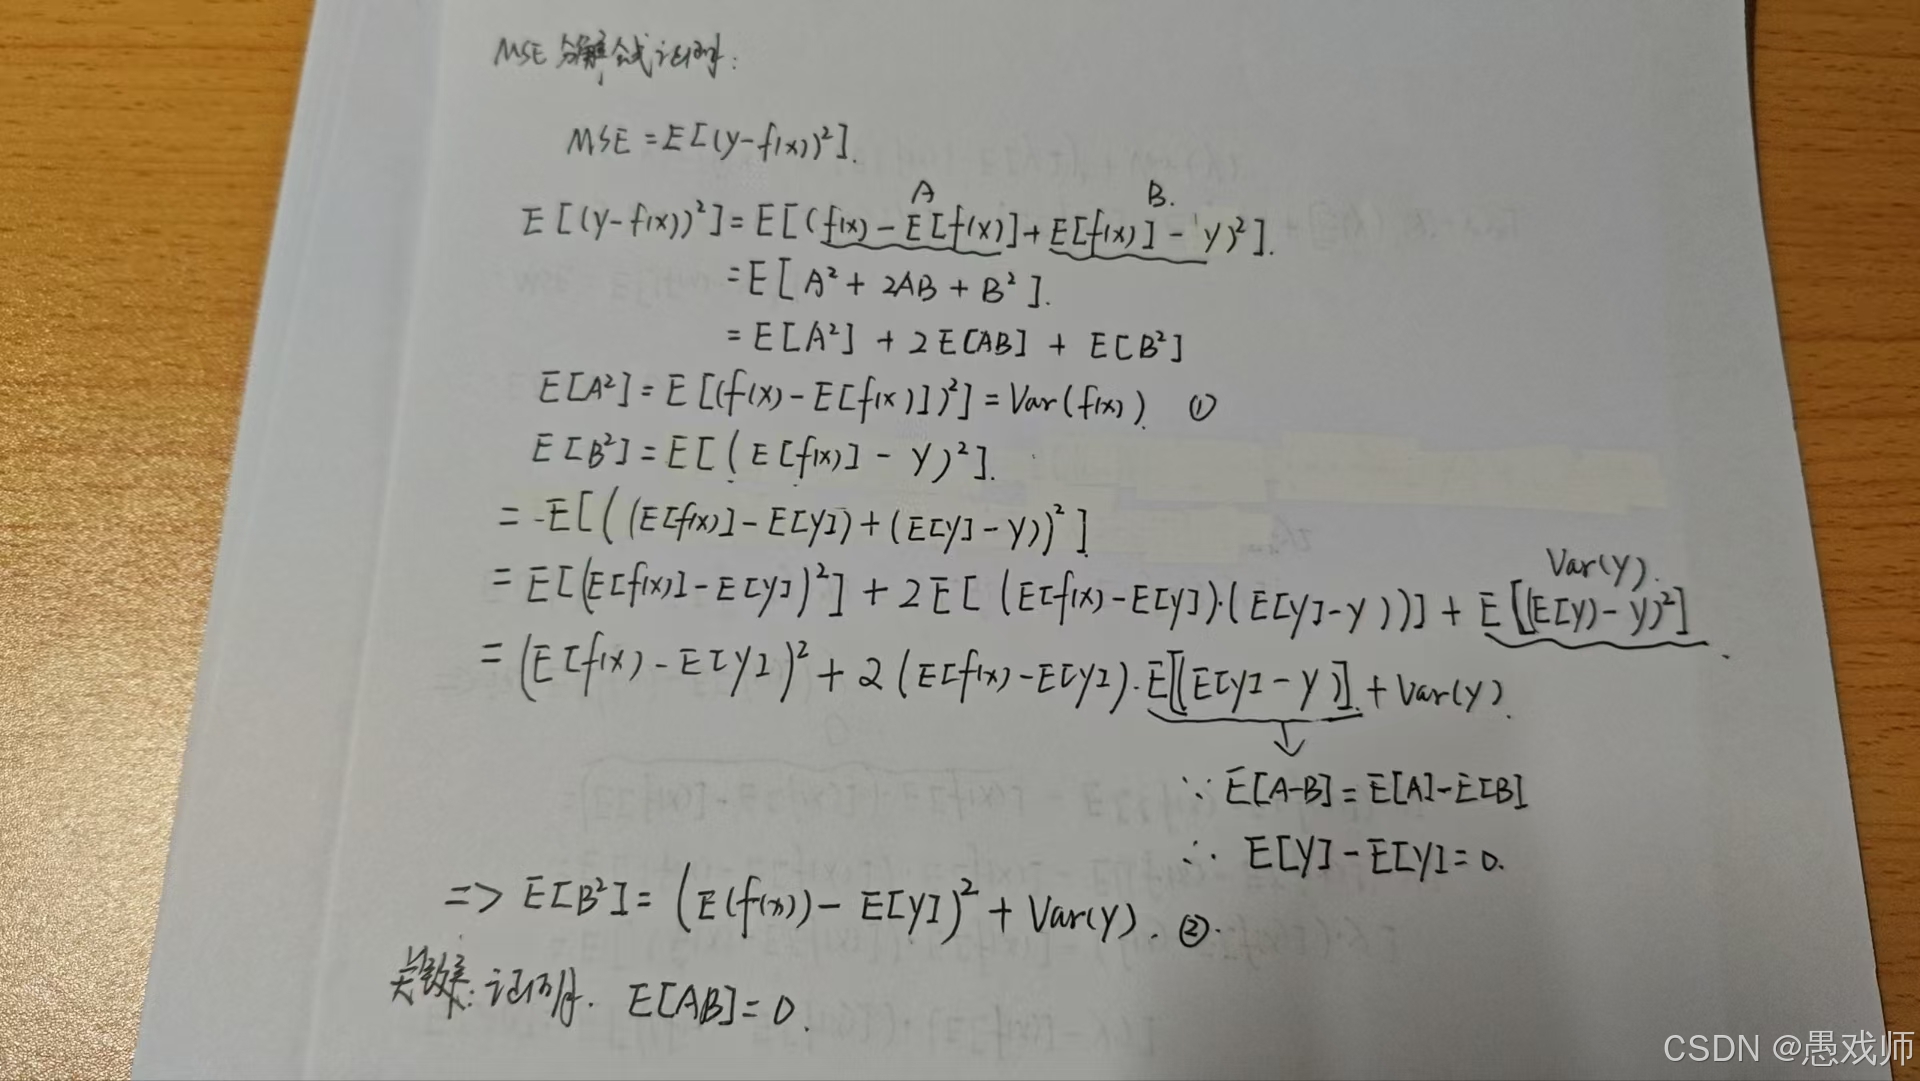 MSE 分解公式证明:
MSE = E[(y-f(x))²].
A B.
E[(y-f(x))²] = E[(f(x) - E[f(x)] + E[f(x)] - y)²].
= E[A² + 2AB + B²].
= E[A²] + 2E[AB] + E[B²]
E[A²] = E[(f(x) - E[f(x)])²] = Var(f(x)). ①
E[B²] = E[(E[f(x)] - y)²].
= E[((E[f(x)] - E[y]) + (E[y] - y))²]
Var(y).
= E[(E[f(x)] - E[y])²] + 2E[(E[f(x) - E[y])·(E[y] - y))] + E[(E[y) - y)²]
= (E[f(x) - E[y])² + 2(E[f(x) - E[y])·E[(E[y] - y)] + Var(y).
∵ E[A-B] = E[A] - E[B]
∴ E[y] - E[y] = 0.
=> E[B²] = (E(f(x)) - E[y])² + Var(y). ②.
关键: 证明. E[AB] = 0.
CSDN @愚戏师